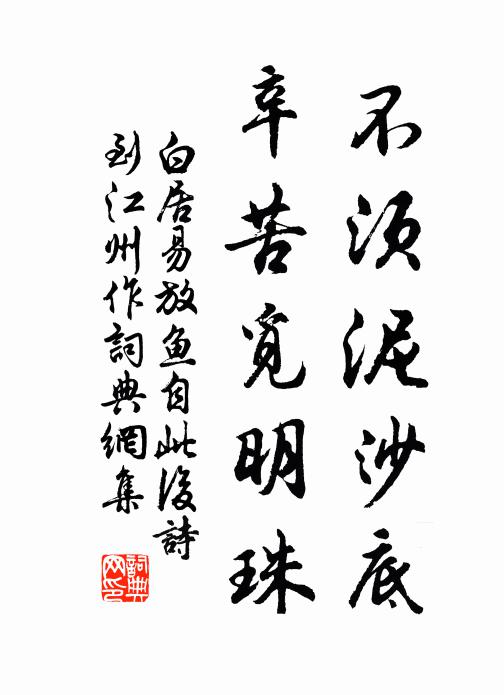 不须泥沙底
辛苦觅明珠
白居易放鱼自此後詩
到江州作詞典網集
詞典
网印